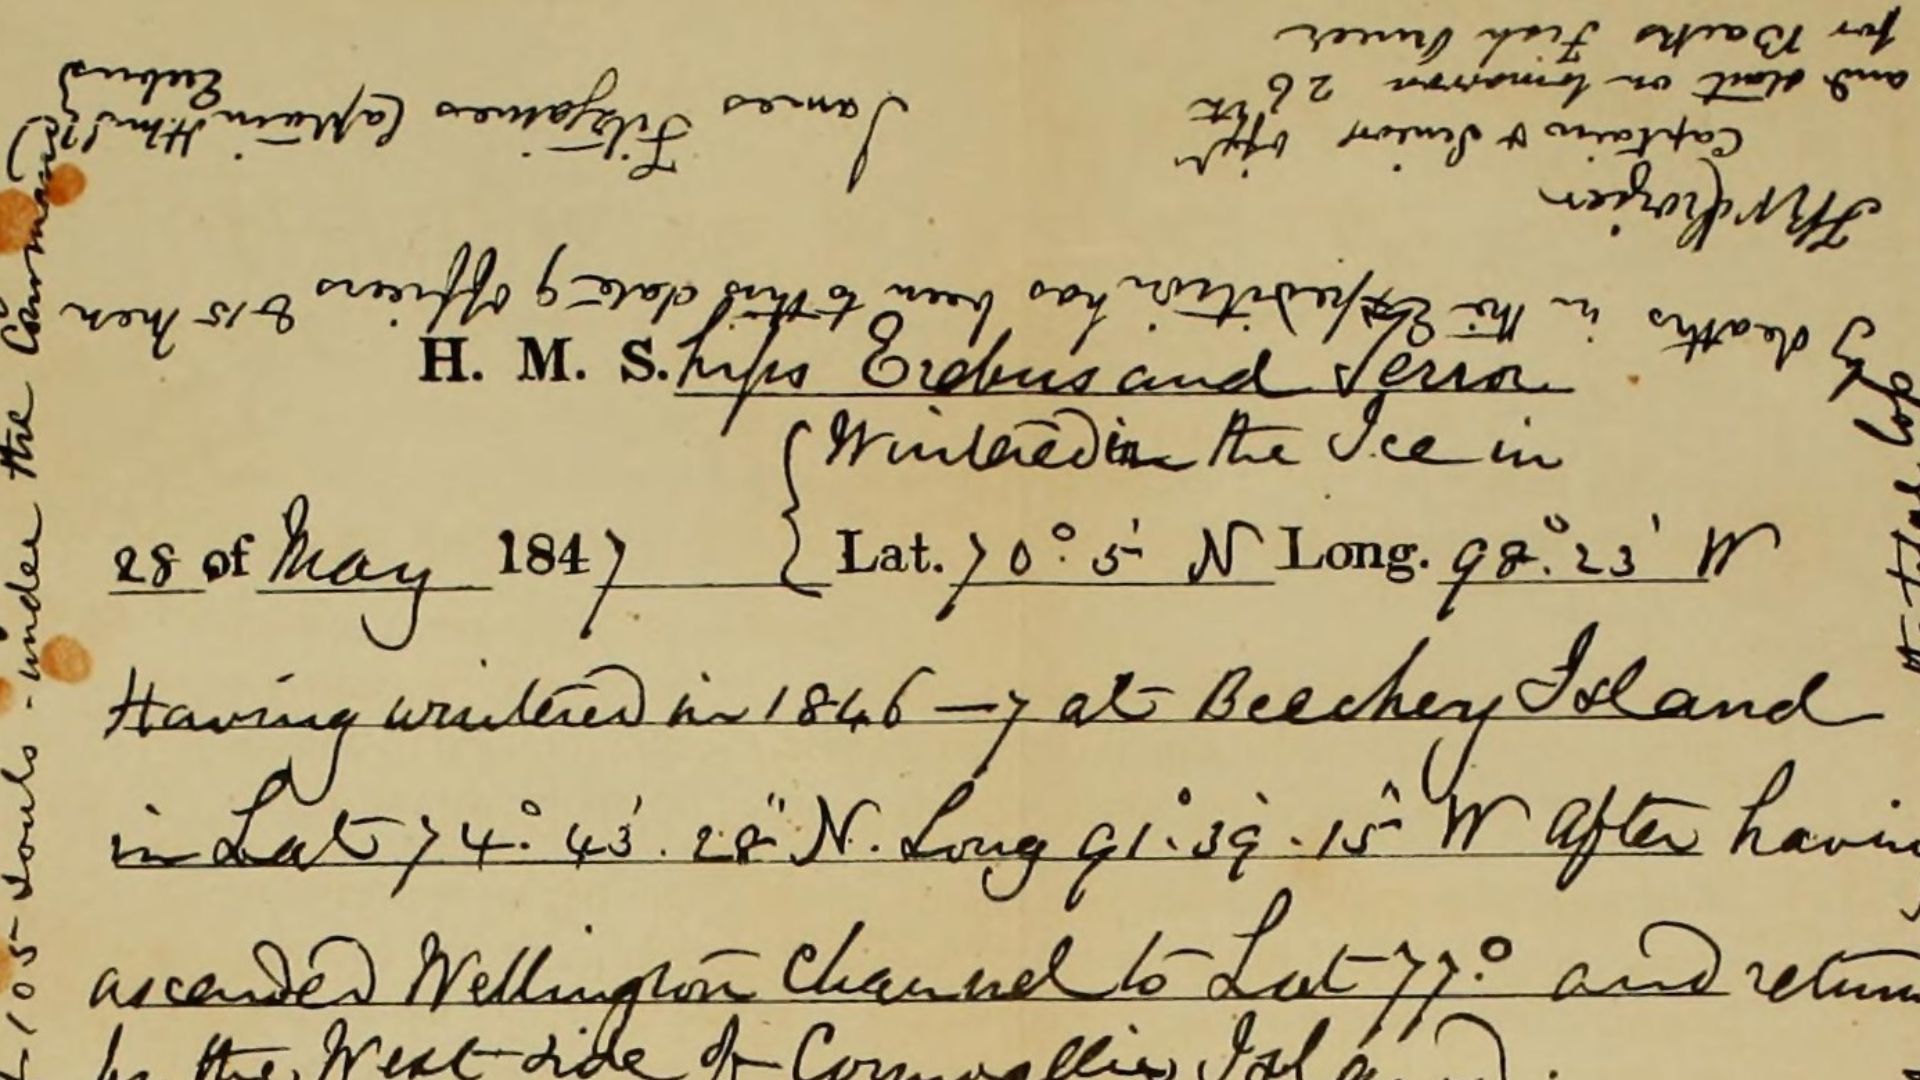 H. M. S.hips Erebus and Terror
Wintered in the Ice in
28 of May 1847 Lat. 70° 5' N Long. 98°. 23' W
Having wintered in 1846–7 at Beechey Island
in Lat 74°. 43'. 28" N. Long 91°. 39'. 15" W After havin
ascended Wellington Channel to Lat 77°. and return
by the West side of Cornwallis Island.
by deaths in the Expedition has been to this date 9 officers & 15 men
James Fitzjames Captain H.M.S.
Erebus
FRM Crozier
Captain & Senior Offr
and start on tomorrow 26th
for Backs Fish River
105 souls - under the Command